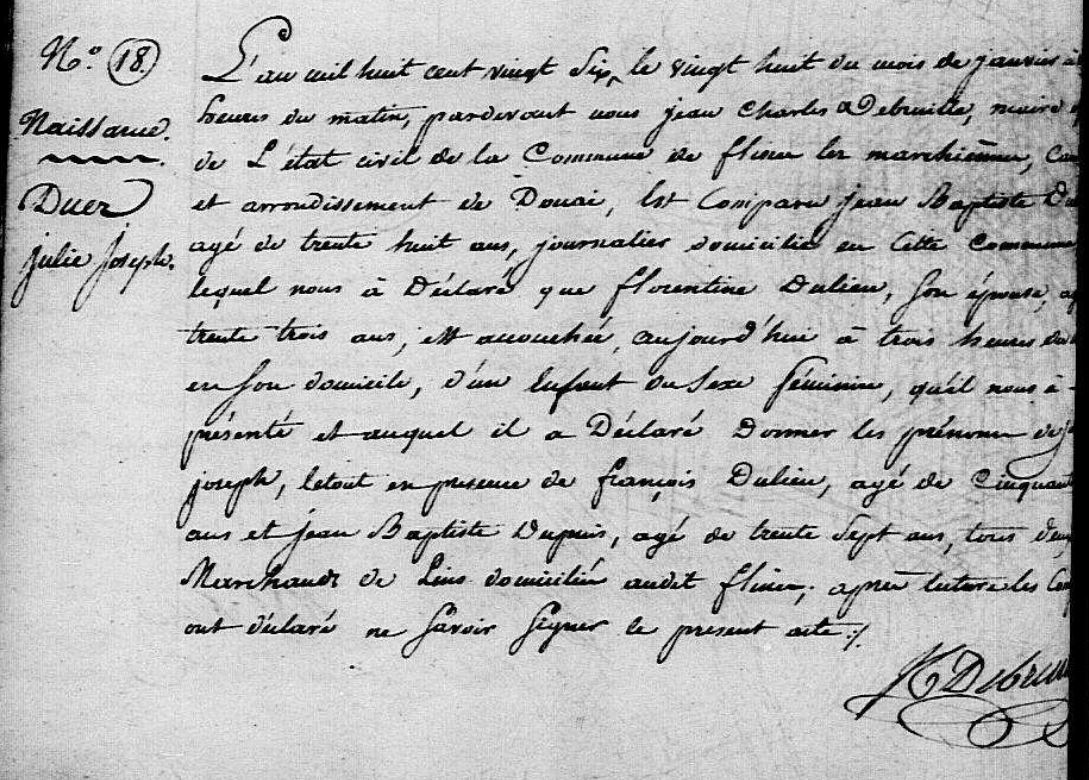 N.° 18.
Naissance.
Duez
julie joseph.
L'an mil huit cent vingt six, le vingt huit du mois de janvier à
heures du matin, pardevant nous jean Charles Debruille, maire
de L'état civil de la Commune de flines lez marchiennes, Can
et arrondissement de Douai, Est Comparu jean Baptiste Du
agé de trente huit ans, journalier domicilié en Cette Commune
lequel nous à Déclaré que florentine Dulieu, son épouse, ag
trente trois ans, est accouchée, aujourd'hui à trois heures du
en son domicile, d'un Enfant du Sexe féminin, qu'il nous à
présenté et auquel il a Déclaré Donner les prénoms de j
joseph, letout en presence de françois Dulieu, agé de Cinquant
ans et jean Baptiste Dupuis, agé de trente Sept ans, tous deux
Marchands de Lins domiciliés audit flines, après lecture les Comp
ont déclaré ne Savoir Signer le present acte ./.
JC Debrui